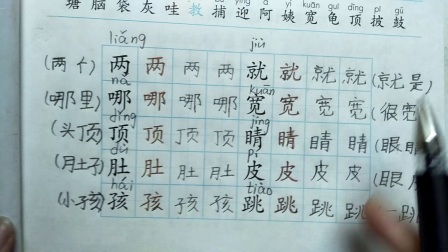 yí kuān guī dǐng pī gǔ
塘 脑 袋 灰 哇 教 捕 迎 阿 姨 宽 龟 顶 披 鼓
liǎng jiù
(两个) 两 两 两 两 就 就 就 就 (就是)
nǎ kuān
(哪里) 哪 哪 哪 哪 宽 宽 宽 宽 (很宽
dǐng jīng
(头顶) 顶 顶 顶 顶 睛 睛 睛 睛 (眼睛
dù pí
(肚子) 肚 肚 肚 肚 皮 皮 皮 皮 (眼皮
hái tiào
(小孩) 孩 孩 孩 孩 跳 跳 跳 跳 跳